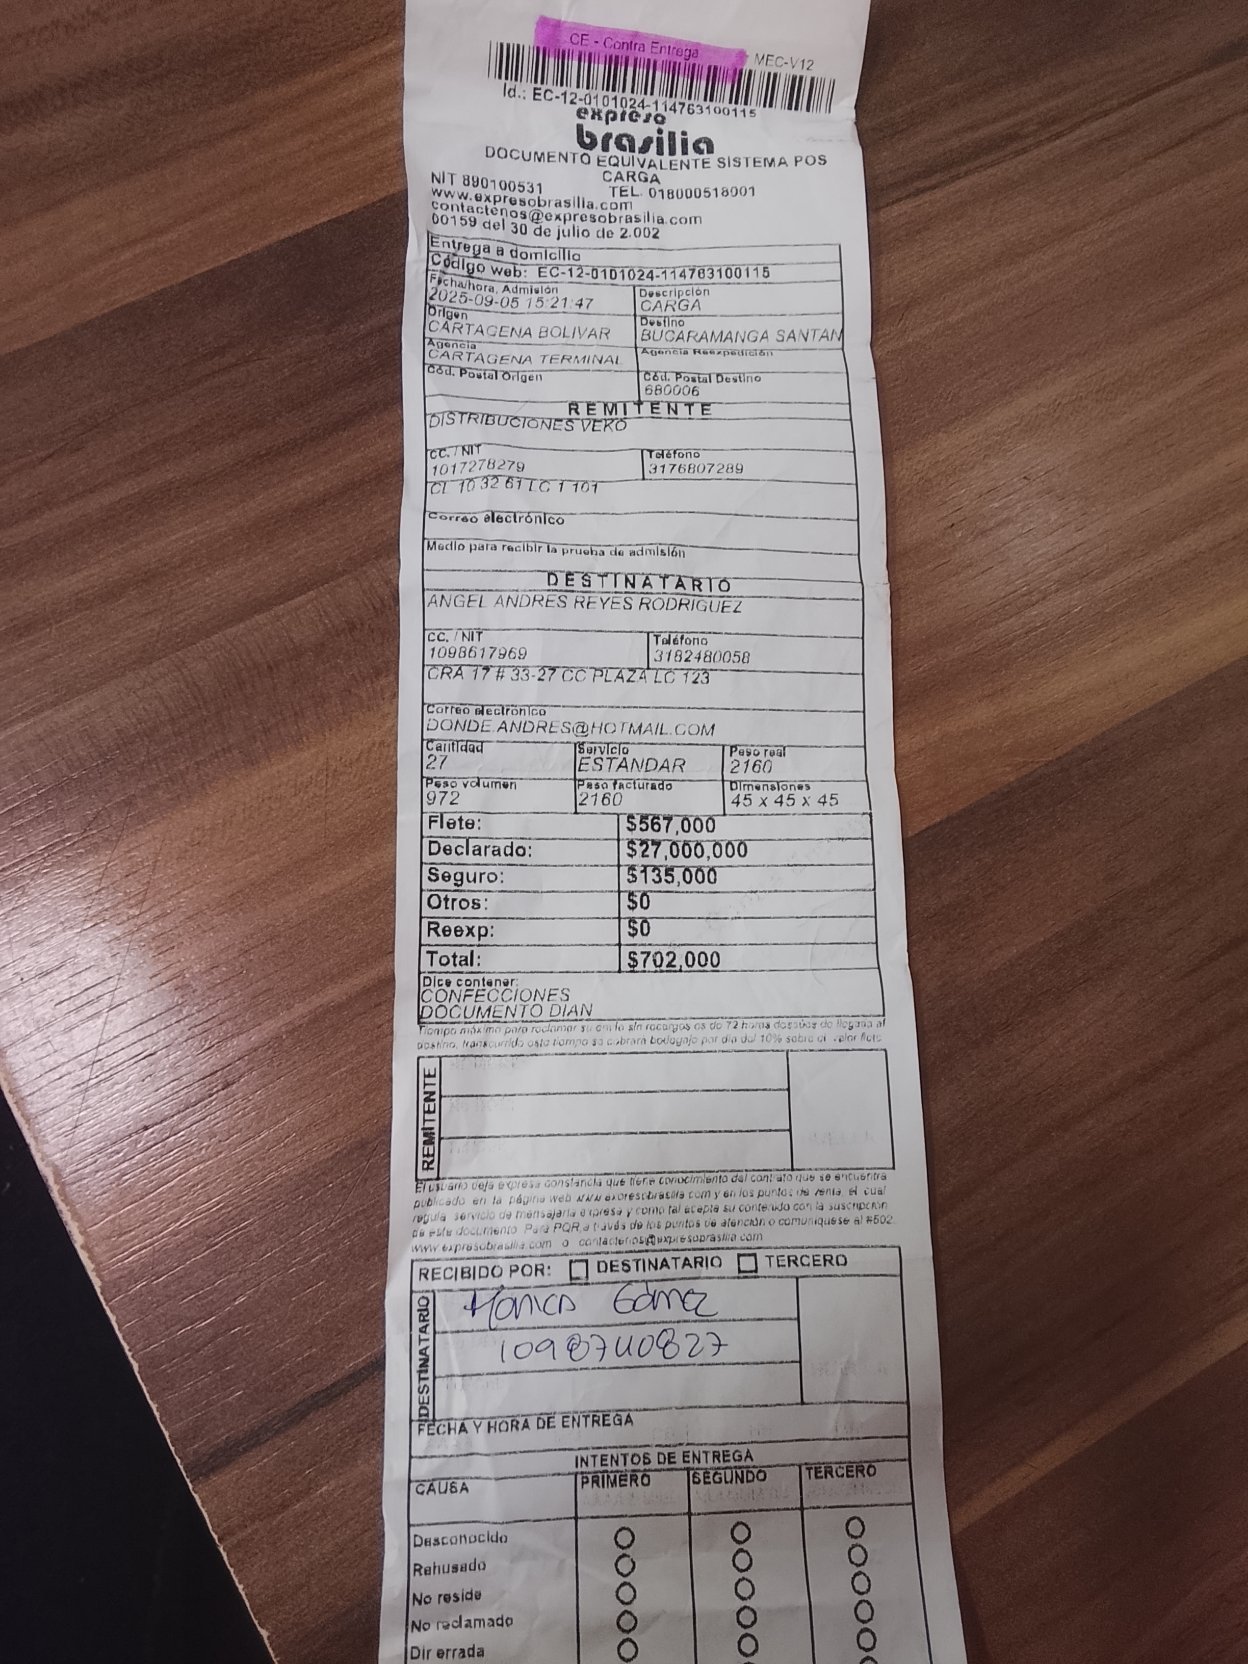 CE - Contra Entrega
MEC-V12
Id.: EC-12-0101024-114763100115
expreso
brasilia
DOCUMENTO EQUIVALENTE SISTEMA POS
CARGA
NIT 890100531 TEL. 018000518001
www.expresobrasilia.com
contactenos@expresobrasilia.com
00159 del 30 de julio de 2.002
Entrega a domicilio
Código web: EC-12-0101024-114763100115
Fecha/hora, Admisión Descripción
2025-09-05 15:21:47 CARGA
Origen Destino
CARTAGENA BOLIVAR BUCARAMANGA SANTAN
Agencia Agencia Reexpedición
CARTAGENA TERMINAL
Cód. Postal Origen Cód. Postal Destino
680006
REMITENTE
DISTRIBUCIONES VEKO
CC. / NIT Teléfono
1017278279 3176807289
CL 10 32 61 LC 1 101
Correo electrónico
Medio para recibir la prueba de admisión
DESTINATARIO
ANGEL ANDRES REYES RODRIGUEZ
CC. / NIT Teléfono
1098617969 3182480058
CRA 17 # 33-27 CC PLAZA LC 123
Correo electrónico
DONDE.ANDRES@HOTMAIL.COM
Cantidad Servicio Peso real
27 ESTANDAR 2160
Peso volumen Peso facturado Dimensiones
972 2160 45 x 45 x 45
Flete: $567,000
Declarado: $27,000,000
Seguro: $135,000
Otros: $0
Reexp: $0
Total: $702,000
Dice contener:
CONFECCIONES
DOCUMENTO DIAN
Tiempo máximo para reclamar su envío sin recargos es de 72 horas después de llegada al
destino, transcurrido este tiempo se cobrara bodegaje por día del 10% sobre el valor flete
REMITENTE
El usuario deja expresa constancia que tiene conocimiento del contrato que se encuentra
publicado en la página web www.expresobrasilia.com y en los puntos de venta el cual
regula servicio de mensajería expresa y como tal acepta su contenido con la suscripción
de este documento. Para PQR a través de los puntos de atención o comuniquese al #502
www.expresobrasilia.com o contactenos@expresobrasilia.com
RECIBIDO POR: DESTINATARIO TERCERO
DESTINATARIO
Mónica Gómez
1098740827
FECHA Y HORA DE ENTREGA
INTENTOS DE ENTREGA
CAUSA PRIMERO SEGUNDO TERCERO
Desconocido
Rehusado
No reside
No reclamado
Dir errada